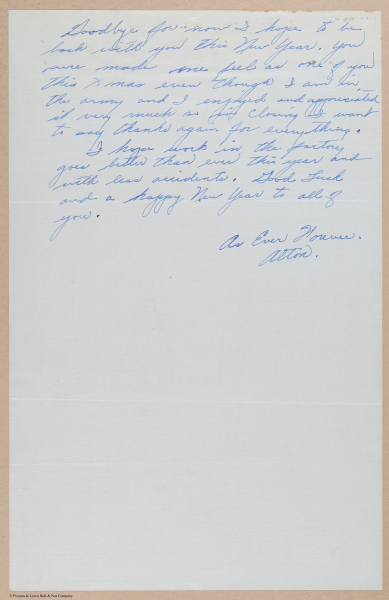 Goodbye for now I hope to be
back with you this New Year. You
sure made me feel as one of you
this Xmas even though I am in
the army and I enjoyed and appreciated
it very much as in closing I want
to say thanks again for everything.
I hope work in the factory
goes better than ever this year and
with less accidents. Good Luck
and a happy New Year to all of
you.
As Ever
Alton.
© Putnam & Lewis Bolt & Nut Company